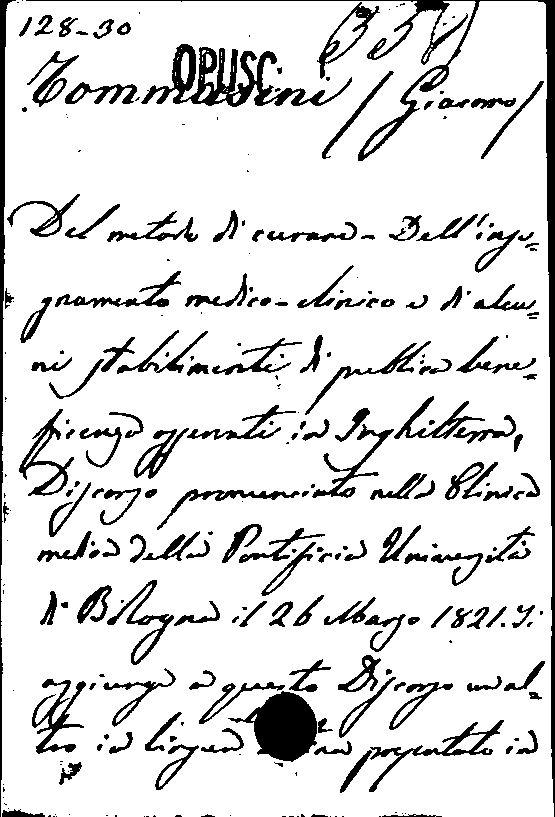 128-30
OPUSC.
Tommasini / Giacomo /
Del metodo di curare - Dell'inse=
gnamento medico-clinico e di alcu=
ni stabilimenti di pubblica bene=
ficenza osservati in Inghilterra,
Discorso pronunciato nella Clinica
medica della Pontificia Università
di Bologna il 26 Marzo 1821. Si
aggiunge a questo Discorso un al-
tro in lingua presentato in